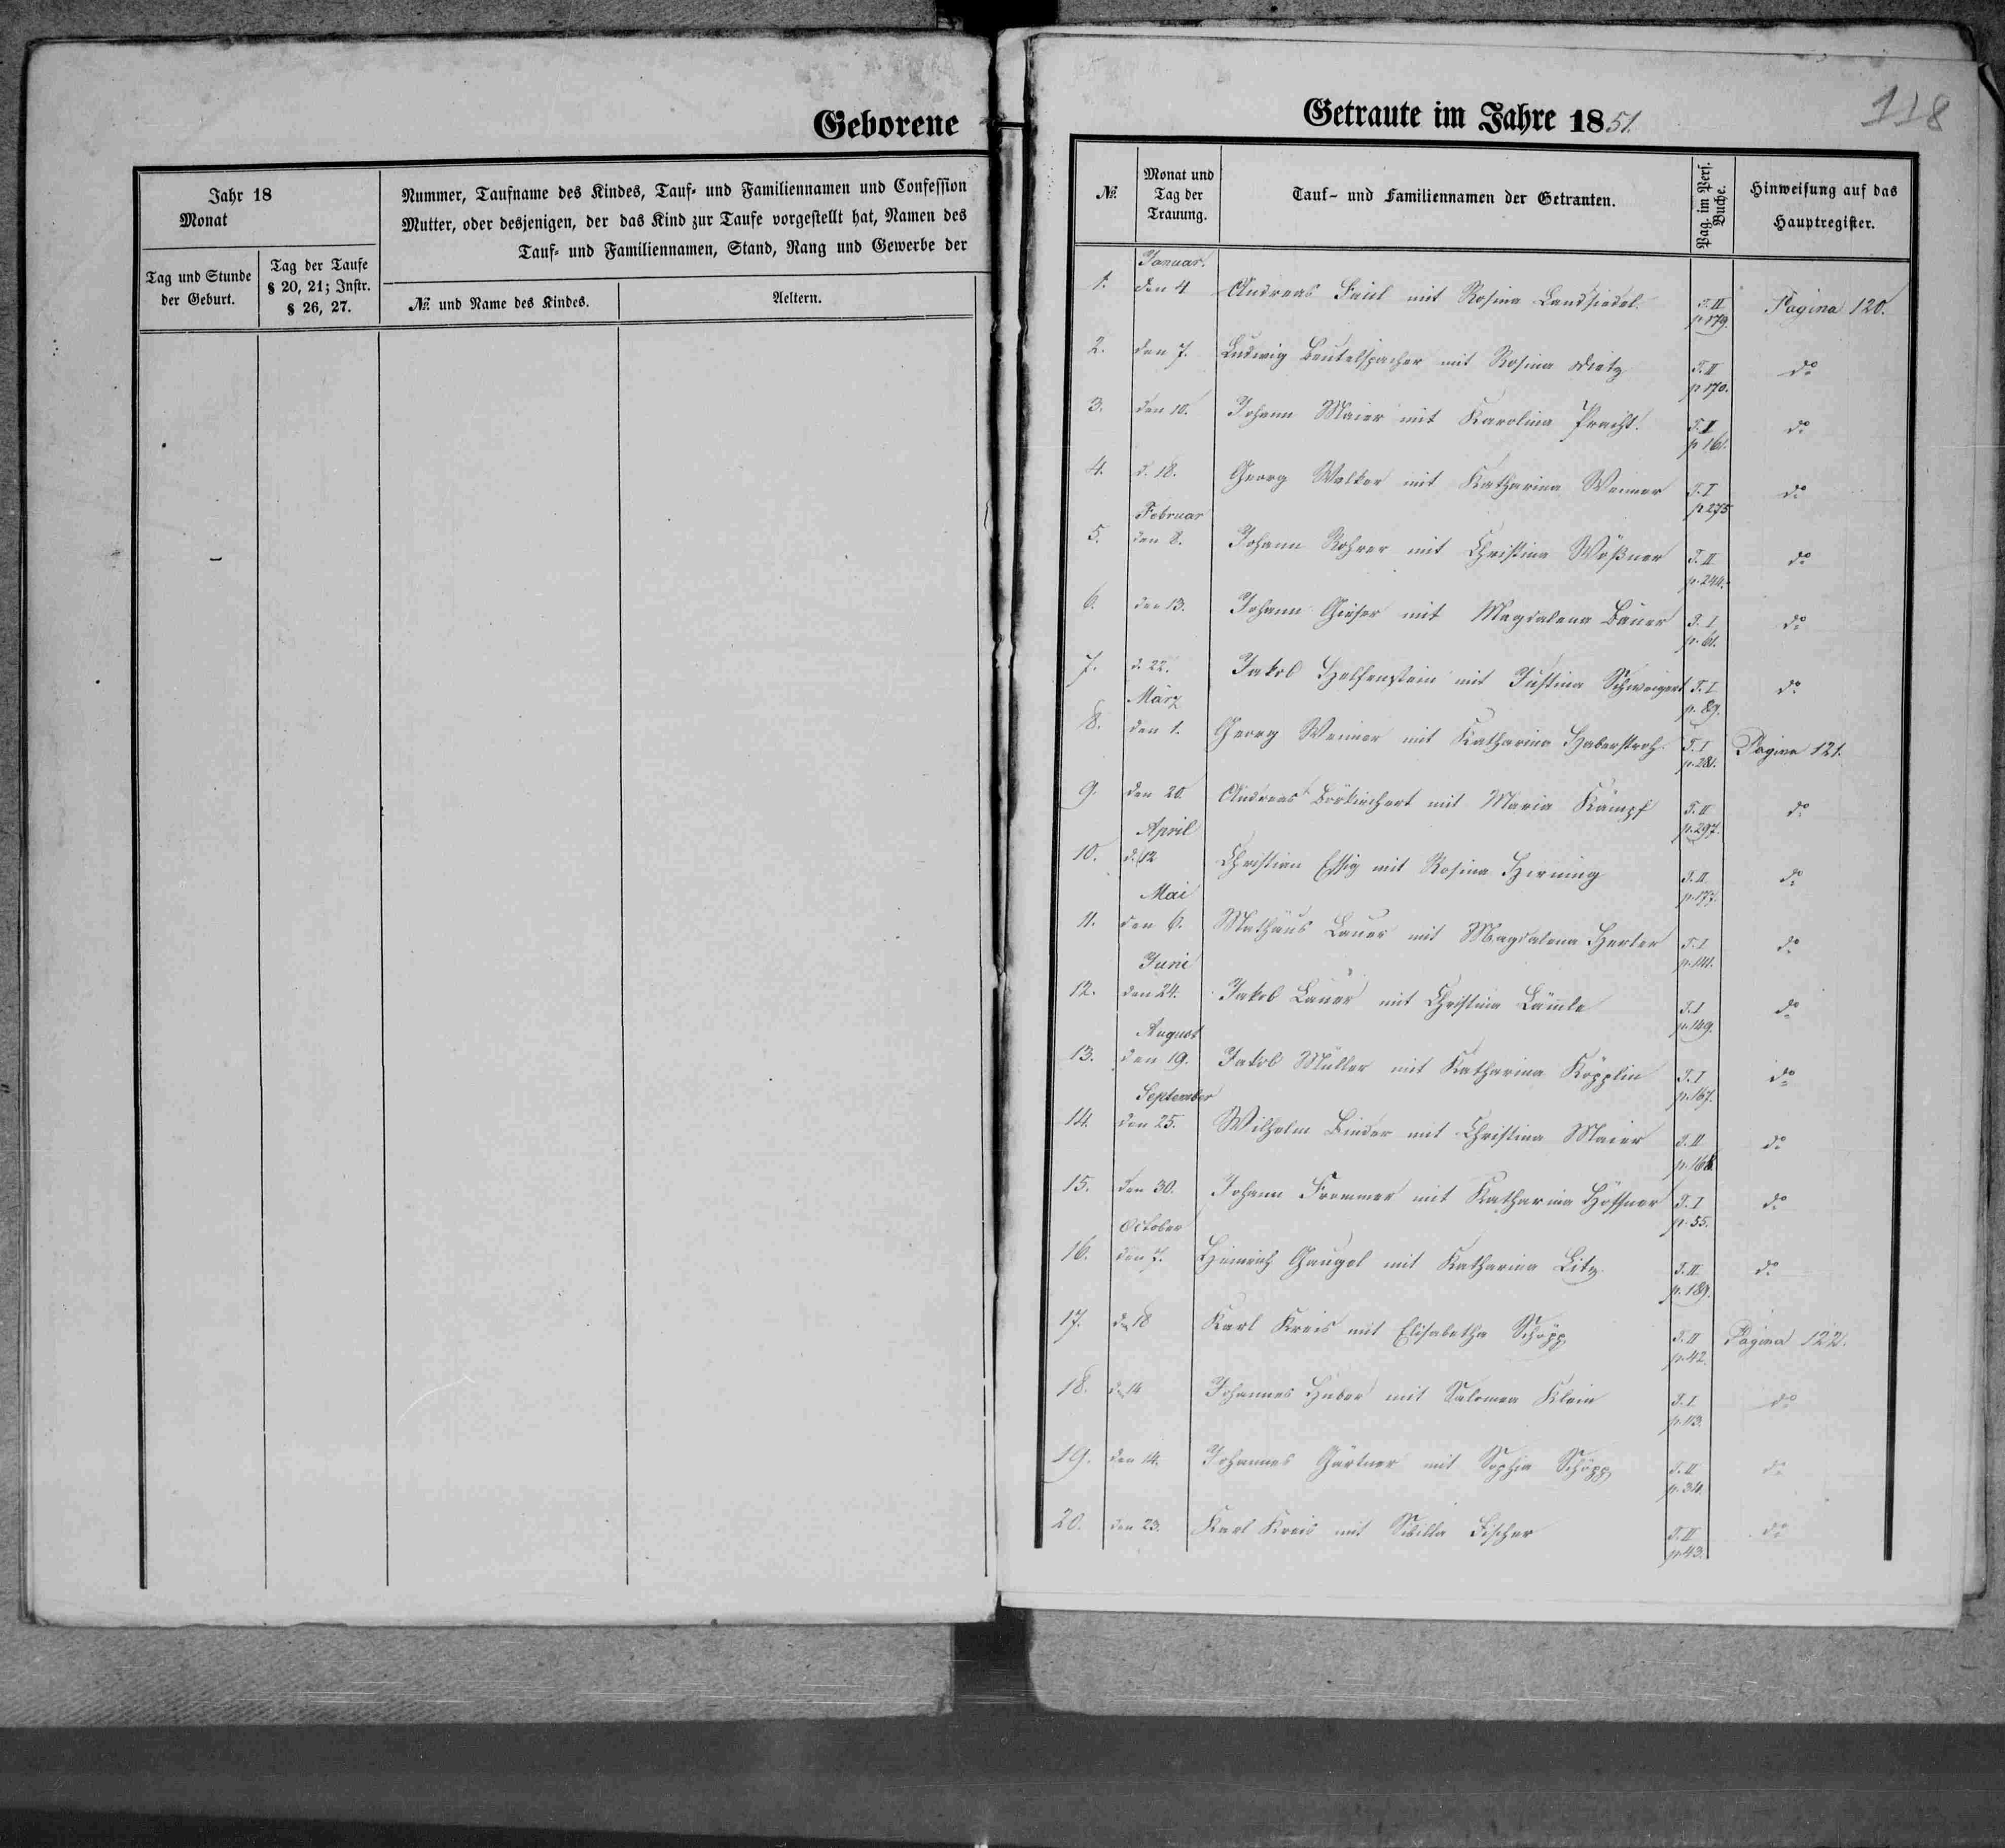 Geborene
Jahr 18
Monat
Tag und Stunde
der Geburt.
Tag der Taufe
§ 20, 21; Instr.
§ 26, 27.
Nummer, Taufname des Kindes, Tauf- und Familiennamen und Confession
Mutter, oder desjenigen, der das Kind zur Taufe vorgestellt hat, Namen des
Tauf- und Familiennamen, Stand, Rang und Gewerbe der
№. und Name des Kindes.
Aeltern.
118
Getraute im Jahre 1851.
№.
Monat und
Tag der
Trauung.
Tauf- und Familiennamen der Getrauten.
Pag. im Pers.
Buche.
Hinweisung auf das
Hauptregister.
Januar.
1. den 4 Andreas Faul mit Rosina Landsiedel. T. II Pagina 120.
p 179.
2. den 7. Ludwig Beutelspacher mit Rosina Dietz T. II do
p 170.
3. den 10. Johann Maier mit Karolina Pracht. T. I do
p 161.
4. d. 18. Georg Walker mit Katharina Weimer T. I do
p 275
Februar
5. den 8. Johann Rohrer mit Christina Wößner T. II do
p. 244.
6. den 13. Johann Gieser mit Magdalena Bauer T. I do
p. 61.
7. d. 22. Jakob Helfenstein mit Justina Schweigert T. I do
p. 89.
März
8. den 1. Georg Weimer mit Katharina Haberstroh T. I Pagina 121.
p. 281.
9. den 20. Andreas mit Maria Kämpf T. II do
p. 297.
April
10. d. 12 Christian Essig mit Rosina Hirning T. II do
p. 177.
Mai
11. den 6. Mathäus Lauer mit Magdalena Herter T. I do
p. 141.
Juni
12. den 24. Jakob Lauer mit Christina Lämle T. I do
p. 149.
August
13. den 19. Jakob Müller mit Katharina Köpplin T. I do
p. 167.
September
14. den 25. Wilhelm Binder mit Christina Maier T. II do
p. 168
15. den 30. Johann Frommer mit Katharina Höffner T. I do
p. 55.
October
16. den 7. Heinrich Gaugel mit Katharina Litz T. II do
p. 189.
17. d. 18 Karl Kreis mit Elisabetha Schöpp T. II Pagina 122.
p. 42.
18. d. 14 Johannes Huber mit Salomea Klein T. I do
p. 113.
19. den 14. Johannes Gärtner mit Sophia Schöpp T. II do
p. 34.
20. den 23. Karl Kreis mit Sibilla Fischer T. II do
p. 43.